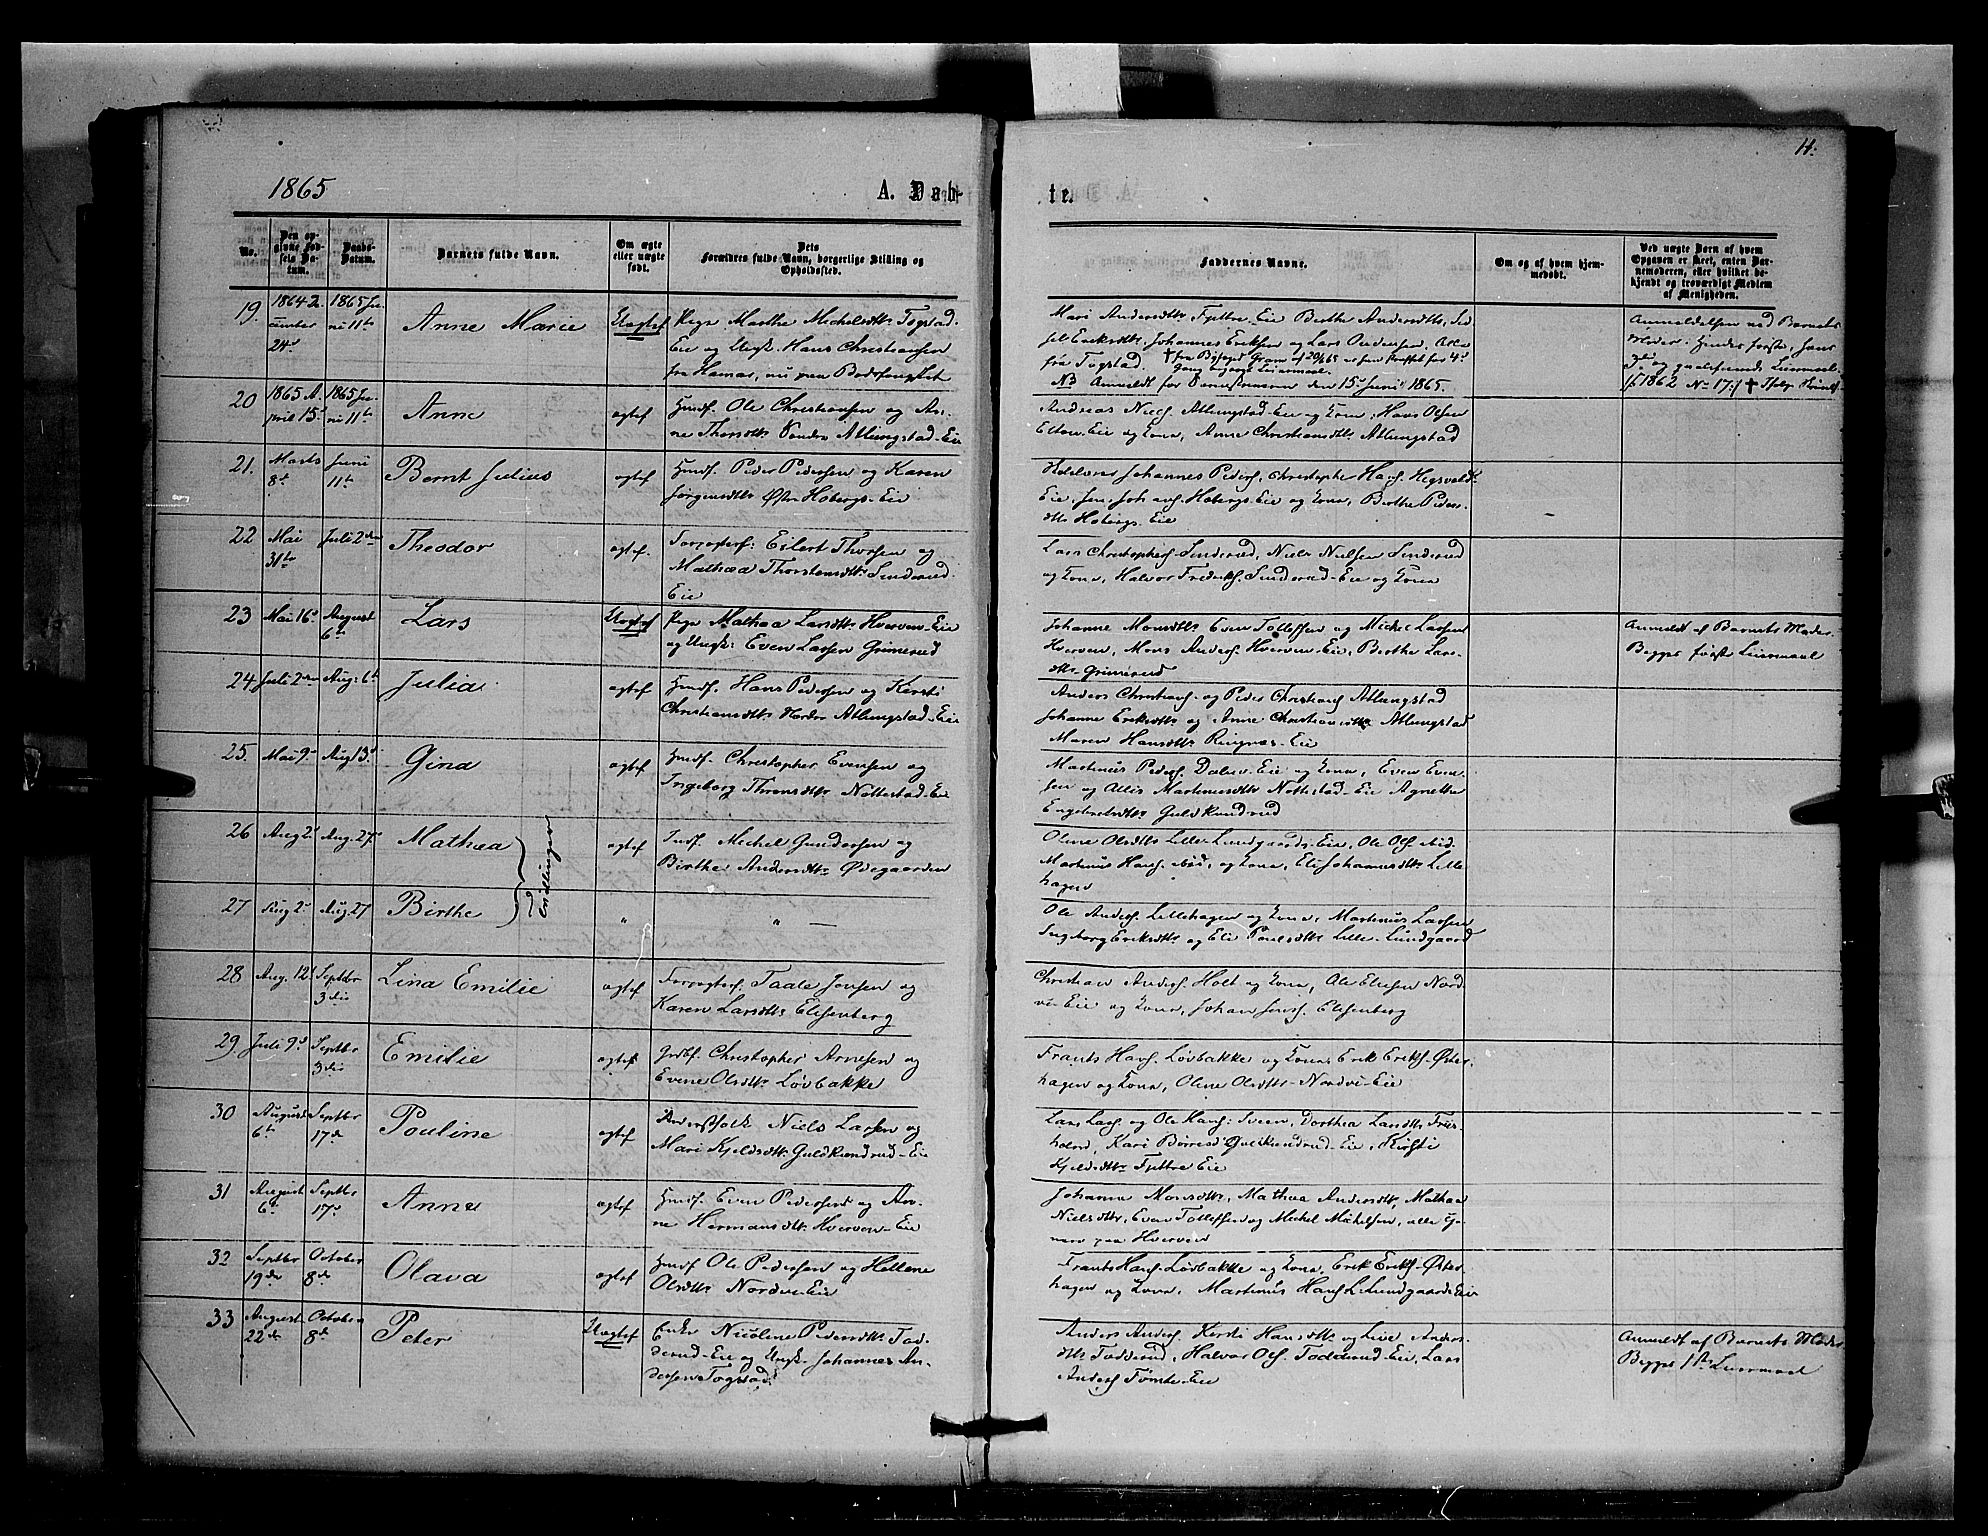 1865
A. Dab-
te.
11.
No.
Den op-
givne Fød-
sels Da-
tum.
Daabs-
Datum.
Barnets fulde Navn.
Om ægte
eller uægte
født.
Dets
Forældres fulde Navn, borgerlige Stilling og
Opholdssted.
Faddernes Navne.
Om og af hvem hjem-
medøbt.
Ved uægte Børn af hvem
Opgaven er skeet, enten Bar-
nemoderen, eller hvilket be-
kjendt og troværdigt Medlem
af Menigheden.
19.
1864 De
cember
24de
1865 Ju-
ni 11te
Anne Marie
Uægtef
Pige Marthe Michelsdttr Togstad
Eie og Ungk. Hans Christiansen
fra Hamar, nu paa Bodsfængslet
Mari Andersdttr Fjettre Eie Berthe Andersdttr,
sel Eriksdttr, Johannes Eriksen og Lars Andersen,
fra Togstad.
NB Anmeldt for den 15de Juni 1865.
Anmeldelsen ved Barnets
Moder. Hendes første, hans
1862 No 17
20
1865 A-
pril 15de
1865 Ju-
ni 11te
Anne
ægtef
Huusf. Ole Christiansen og An-
ne Thorsdttr Søndre Atlungstad-Eie
Andreas Niels. Atlungstad-Eie og Kone, Hans Olsen
Elton-Eie og Kone, Anne Christiansdttr Atlungstad
21.
Marts
8de
Juni
11te
Bernt Julius
ægtef
Huusf. Peder Pedersen og Karen
Jørgensdttr Østre Hoberg-Eie
Johannes Peders., Christopher Hans. Hegsvold-
Eie, Jens Johans. Hoberg-Eie og Kone, Berthe Peders-
dttr Hobergs-Eie
22
Mai
31te
Juli 2den
Theodor
ægtef.
Forpagterf. Eilert Thorsen og
Mathea Thorstensdttr Sinderud-
Eie
Lars Christophers. Sinderud, Niels Nielsen Sinderud
og Kone, Halvor Frederiks. Sinderud-Eie og Kone
23
Mai 16de
August
6te
Lars
Uægtef
Pige Mathea Larsdttr Hverven-Eie
og Ungk: Even Larsen Grimerud
Johanne Monsdttr Even Tollefsen og Michel Larsen
Hverven, Mons Anders. Hverven-Eie, Berthe Lars-
dttr Grimerud
Anmeldt af Barnets Moder.
Begges første Leiermaal
24
Juli 2den
Aug: 6te
Julia
ægtef
Huusf. Hans Pedersen og Kersti
Christiansdttr Nordre Atlungstad-Eie
Anders Christians. og Peder Christians. Atlungstad
Johanne Eriksdttr og Anne Christiansdttr Atlungstad
Maren Hansdttr Ringnes-Eie
25.
Mai 9de
Aug 13de
Gina
ægtef
Huusf. Christopher Evensen og
Ingeborg Thronsdttr Nøttestad-Eie
Martinus Peders. Dalen-Eie og Kone, Even Even-
sen og Allis Martinusdttr Nøttestad-Eie Agnethe
Engebretsdttr Guldkundrud
26
Aug 2de
Aug. 27de
Mathea
Tvillinger
ægtef
Indf. Michel Gundersen og
Birthe Andersdttr Ødegaarden
Oline Olsdttr Lille-Lundgaards-Eie, Ole Ols.
Martinus Hans. og Kone, Eli Johannesdttr Lille-
hagen
27
Aug 2de
Aug. 27
Birthe
"
" —
Ole Anders. Lillehagen og Kone, Martinus Larsen
Ingeborg Eriksdttr og Eli Poulsdttr Lille-Lundgaard
28
Aug. 12te
Septbr
3die
Lina Emilie
ægtef
Forpagterf. Taale Jensen og
Karen Larsdttr Elisenberg
Christian Anders. Holt og Kone, Ole Eliesen Nord-
vi-Eie og Kone, Johan Jens. Elisenberg
29.
Juli 9de
Septbr
3die
Emilie
ægtef
Grdbf. Christopher Arnesen og
Evene Olsdttr Løvbakke
Frants Hans. Løvbakke og Kone, Erik Eriks. Øster-
hagen og Kone, Oline Olsdttr Nordvi-Eie
30
August
6te
Septbr
17de
Pouline
ægtef
Inderstfolk Niels Larsen og
Mari Kjeldsdttr Guldkundrud-Eie
Lars Lars. og Ole Hans. Sveen, Dorthea
Kari Guldkundrud-Eie, Kirsti
Kjeldsdttr Fjettre Eie
31
August
6te
Septbr
17de
Anne
ægtef
Huusf. Even Pedersen og An-
ne Hermansdttr Hverven-Eie
Johanne Monsdttr, Mathea Andersdttr, Mathea
Nielsdttr, Even Tollefsen og Michel Michelsen, alle
paa Hverven
32
Septbr
19de
October
8de
Olava
ægtef
Huusf Ole Pedersen og Hellene
Olsdttr Nordvi-Eie
Frants Hans. Løvbakke og Kone, Erik Eriks. Øster-
hagen og Kone, Martinus Hans. L. Lundgaards Eie
33
August
22de
October
8de
Peter
Uægtef
Enke Nicoline Pedersdttr Tod-
derud-Eie og Ungk. Johannes An-
dersen Togstad
Anders Anders. Kersti Hansdttr og Lise Anders-
dttr Todderud, Halvor Ols. Todderud-Eie, Lars
Anders. Tømte-Eie
Anmeldt af Barnets Moder
Begges 1ste Leiermaal